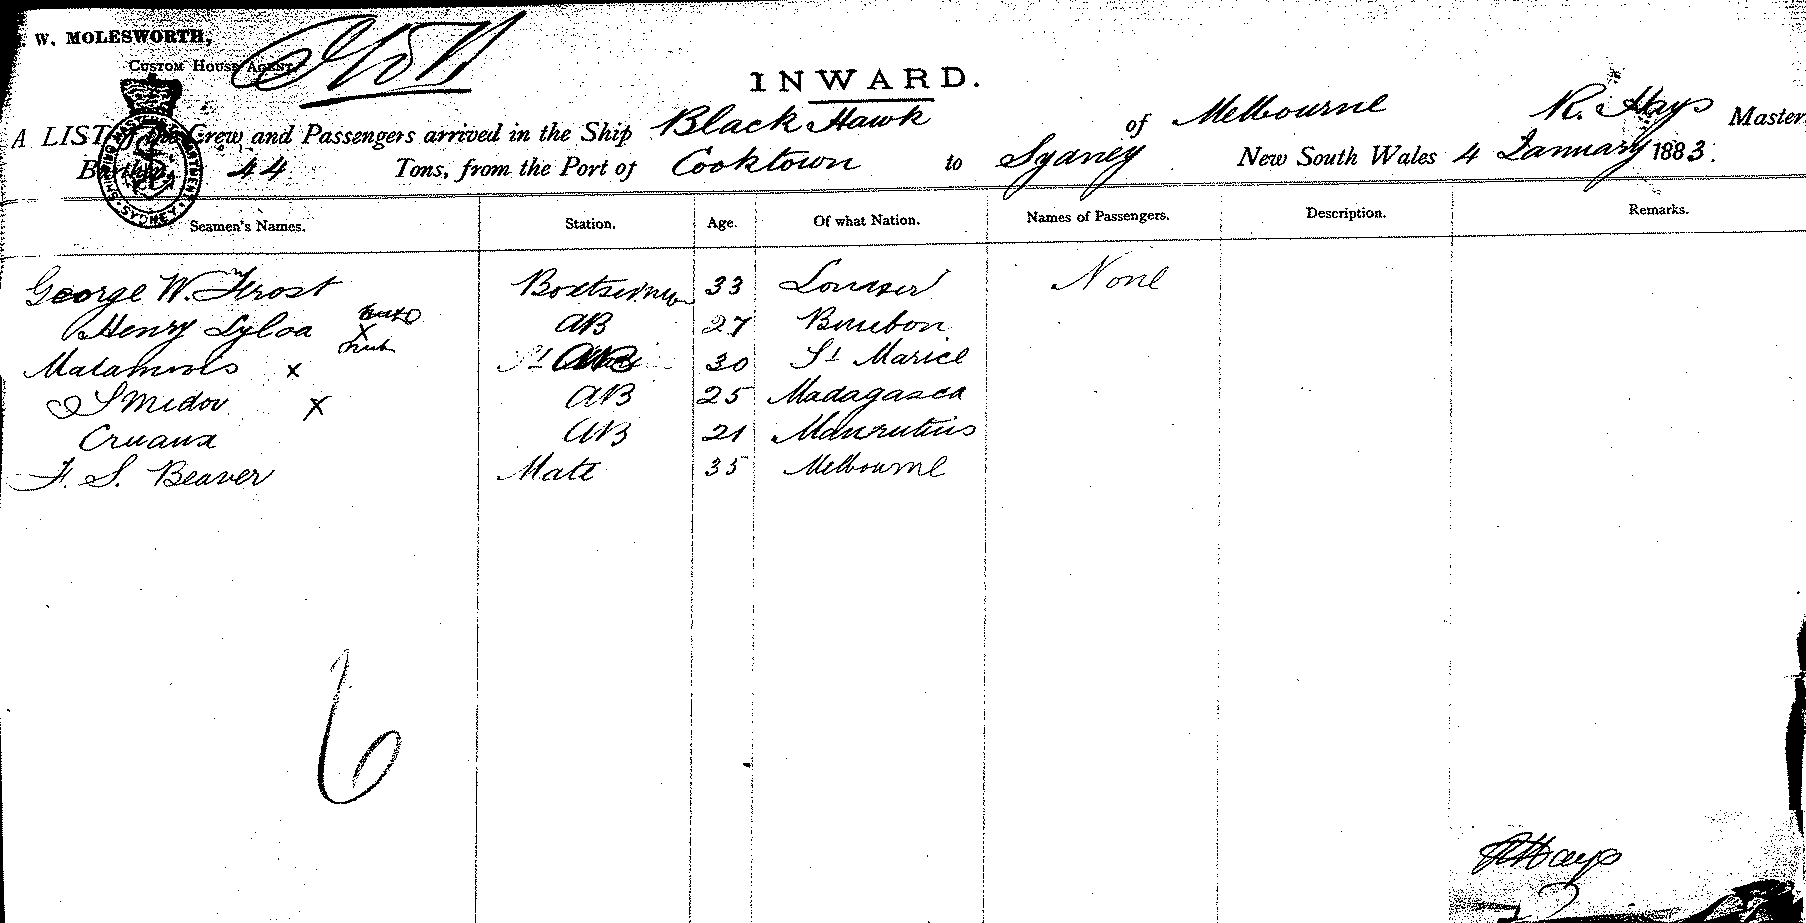 W. MOLESWORTH,
CUSTOM HOUSE AGENT.
INWARD.
A LIST of the Crew and Passengers arrived in the Ship Black Hawk of Melbourne R. Hays Master
Burthen, 44 Tons, from the Port of Cooktown to Sydney New South Wales 4 January 1883.
SYDNEY
Seamen's Names. Station. Age. Of what Nation. Names of Passengers. Description. Remarks.
George W. Frost 33 London None
Henry AB 27 Bourbon
x 30 St
x AB 25 Madagasca
AB 21 Mauritius
F. S. Beaver Mate 35 Melbourne
6
RHays